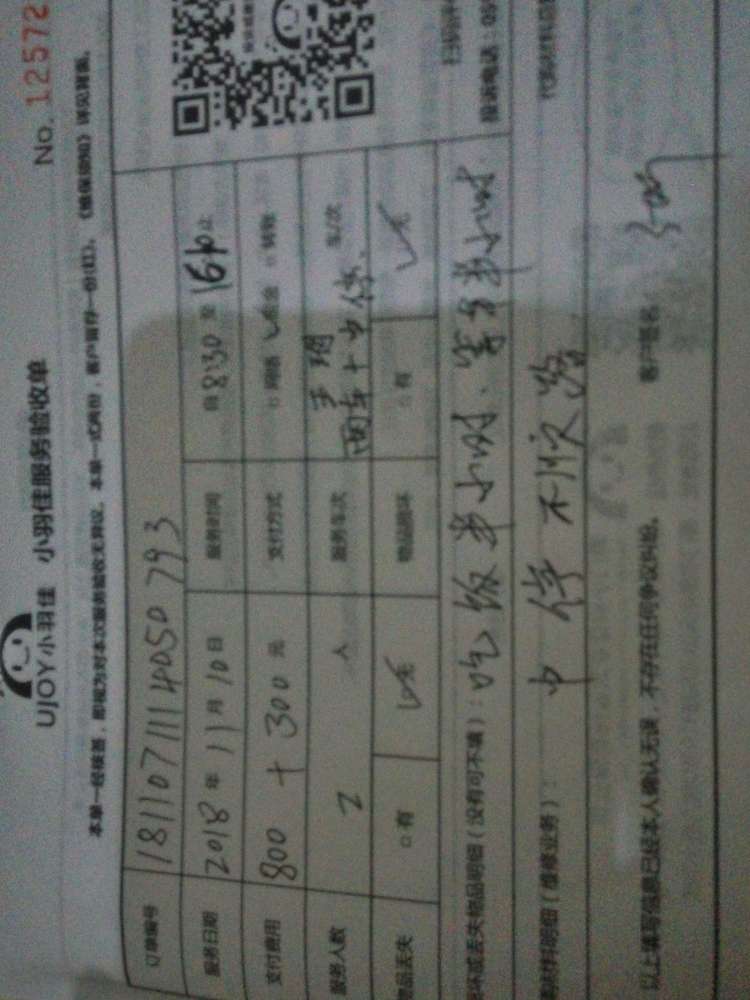 No. 12572
UJOY小羽佳 小羽佳服务验收单
本单一经核签，即视为对本次服务验收无异议。本单一式两份，客户留存一份(红)。《维保须知》详见背面。
订单编号 1811071114050793
服务日期 2018 年 11 月 10 日 服务时间 自 8:30 至 16:10 止
支付费用 800 + 300 元 支付方式 □ 网络 ✓ 现金 □ 转账
服务人数 2 人 服务车次 两车+中停 车/次
物品丢失 □ 有 ✓无 物品损坏 □ 有 ✓无
损坏或丢失物品明细（没有可不填）：吃饭半小时、等客半小时
材料明细（维修业务）： 中停不顺路
以上填写信息已经本人确认无误，不存在任何争议纠纷。 客户签名：
投诉电话：05